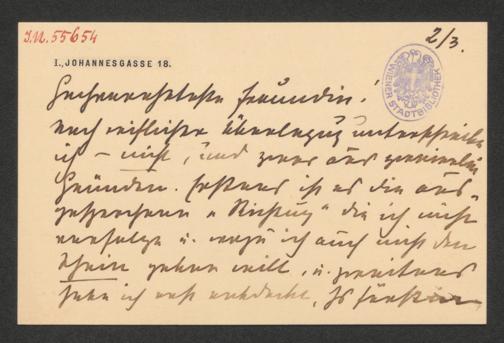 I.N. 55654
2/3.
I., JOHANNESGASSE 18.
WIENER STADTBIBLIOTHEK
Hochverehrteste Freundin!
Nach reiflicher Überlegung unterschreibe
ich – nicht, und zwar aus zweierlei
Gründen. Erstens ist es die aus-
gesprochene „Richtung" die ich nicht
verfolge u. wozu ich auch nicht den
Schein geben will, u. zweitens
habe ich erst entdeckt,